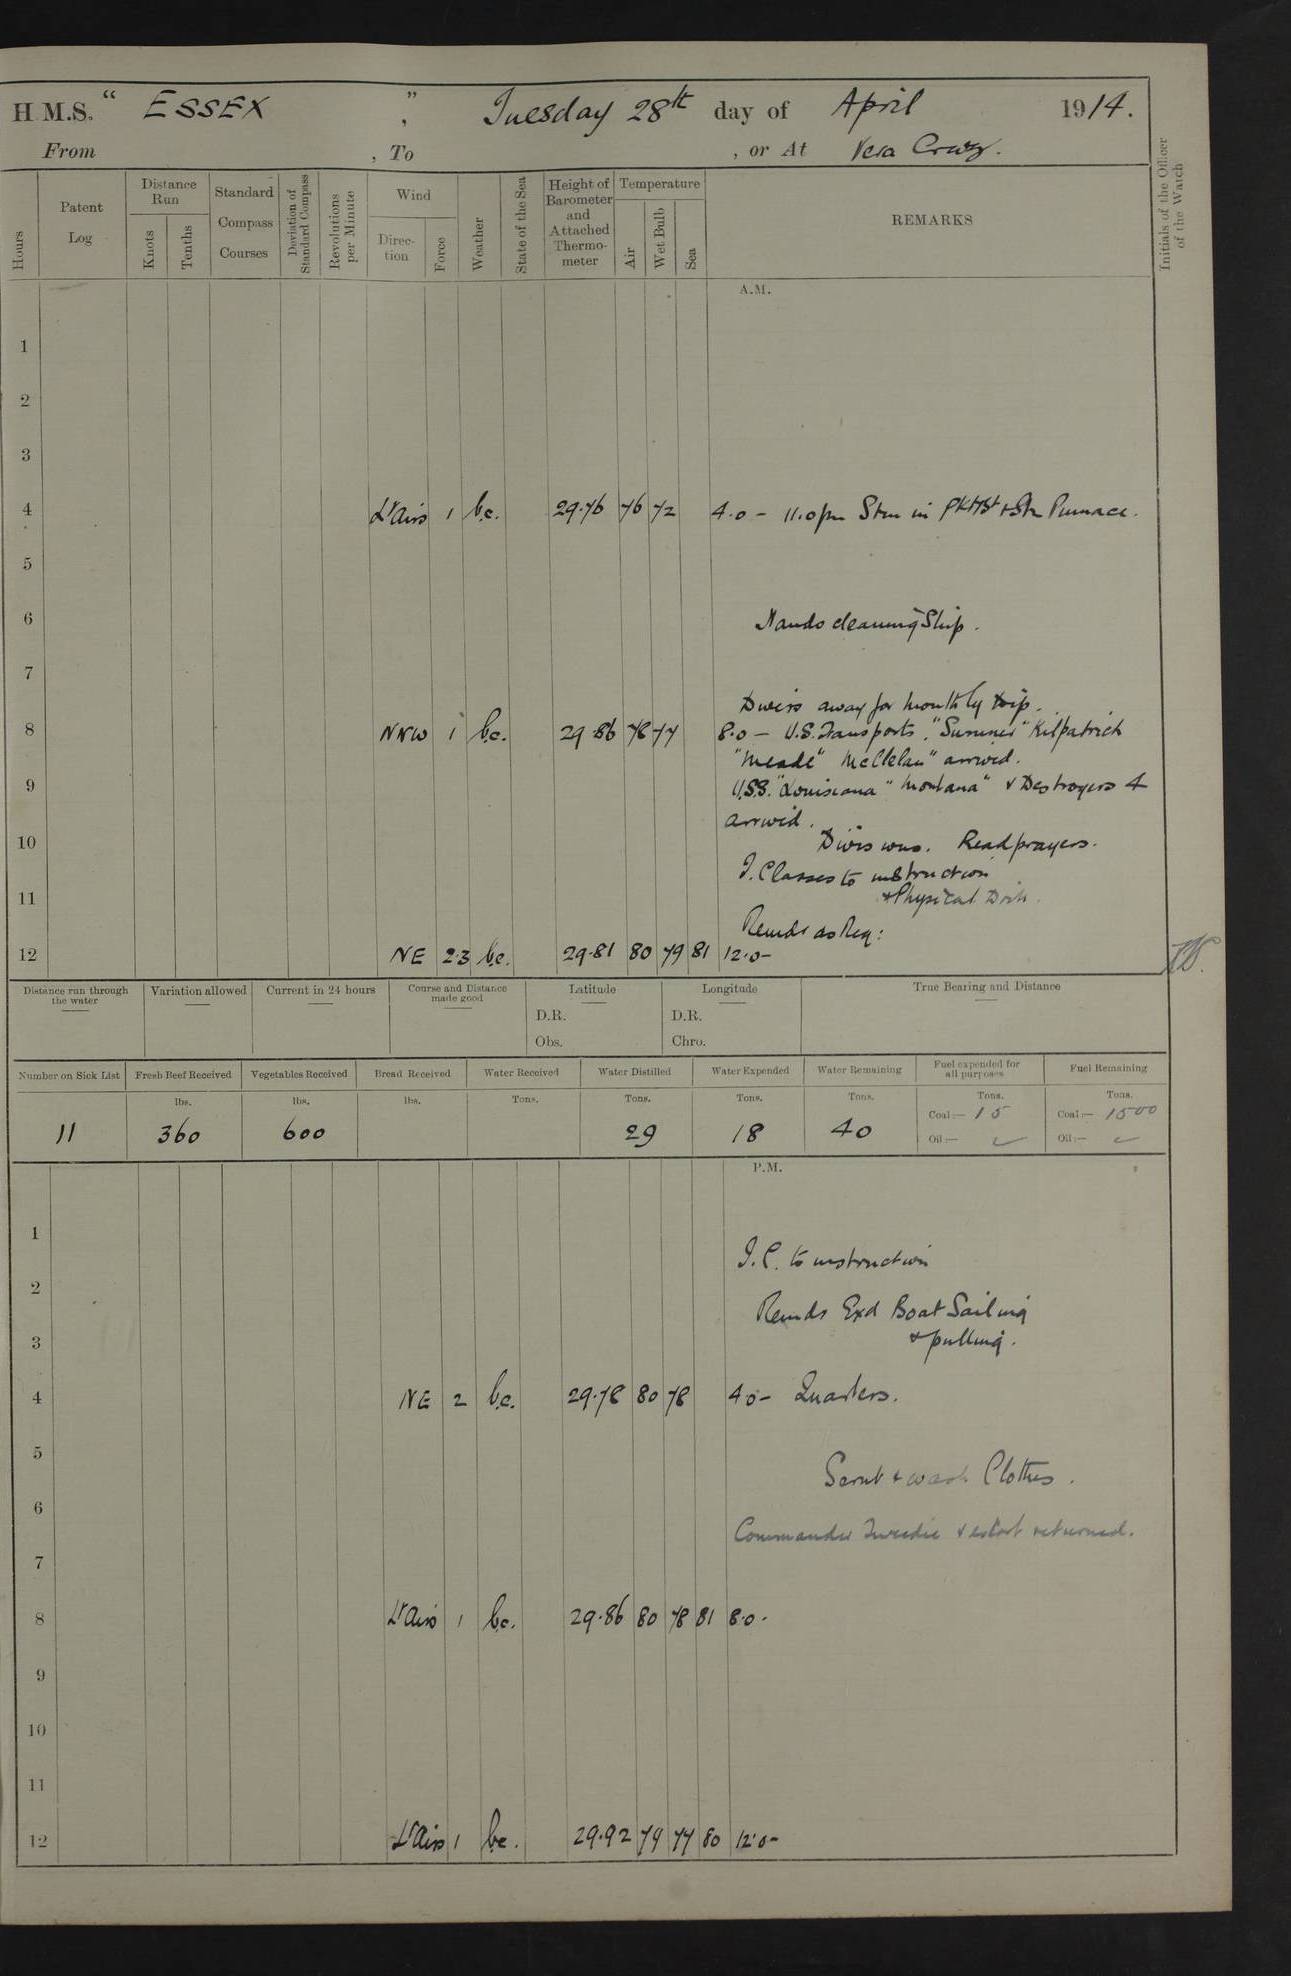 H.M.S. “ ESSEX ” , Tuesday 28th day of April 1914.
From , To , or At Vera Cruz.
Hours
Patent Log
Distance Run
Knots
Tenths
Standard Compass Courses
Deviation of Standard Compass
Revolutions per Minute
Wind
Direc-tion
Force
Weather
State of the Sea
Height of Barometer and Attached Thermo-meter
Temperature
Air
Wet Bulb
Sea
REMARKS
Initials of the Officer of the Watch
A.M.
1
2
3
4 Lt Airs 1 b.c. 29.76 76 72 4.0 - 11.0pm Stm in & Stm Pinnace.
5
6 Hands cleaning Ship.
7
Divers away for monthly dip.
8 NNW 1 b.c. 29.86 78 77 8.0 - U.S. Transports, "Sumner" Kilpatrick
"Meade" McClelan" arrived.
9 U.S.S. "Louisiana" "Montana" & Destroyers 4
arrived.
10 Divisions. Read prayers.
I. Classes to instruction
11 & Physical Drill.
Remdr as Req:
12 NE 2.3 b.c. 29.81 80 79 81 12.0-
Distance run through the water
Variation allowed
Current in 24 hours
Course and Distance made good
Latitude
D.R.
Obs.
Longitude
D.R.
Chro.
True Bearing and Distance
Number on Sick List
Fresh Beef Received
Vegetables Received
Bread Received
Water Received
Water Distilled
Water Expended
Water Remaining
Fuel expended for all purposes
Fuel Remaining
lbs. lbs. lbs. Tons. Tons. Tons. Tons. Tons. Tons.
11 360 600 29 18 40 Coal:— 15 Coal:— 1500
Oil:— Oil:—
P.M.
1
I.C. to instruction
2
Remdr Exd Boat Sailing
3 & pulling.
4 NE 2 b.c. 29.78 80 78 4.0- Quarters.
5
Scrub & wash Clothes.
6
Commander Tweedie & escort returned.
7
8 Lt Airs 1 b.c. 29.86 80 78 81 8.0-
9
10
11
12 Lt Airs 1 b.c. 29.92 79 77 80 12.0-